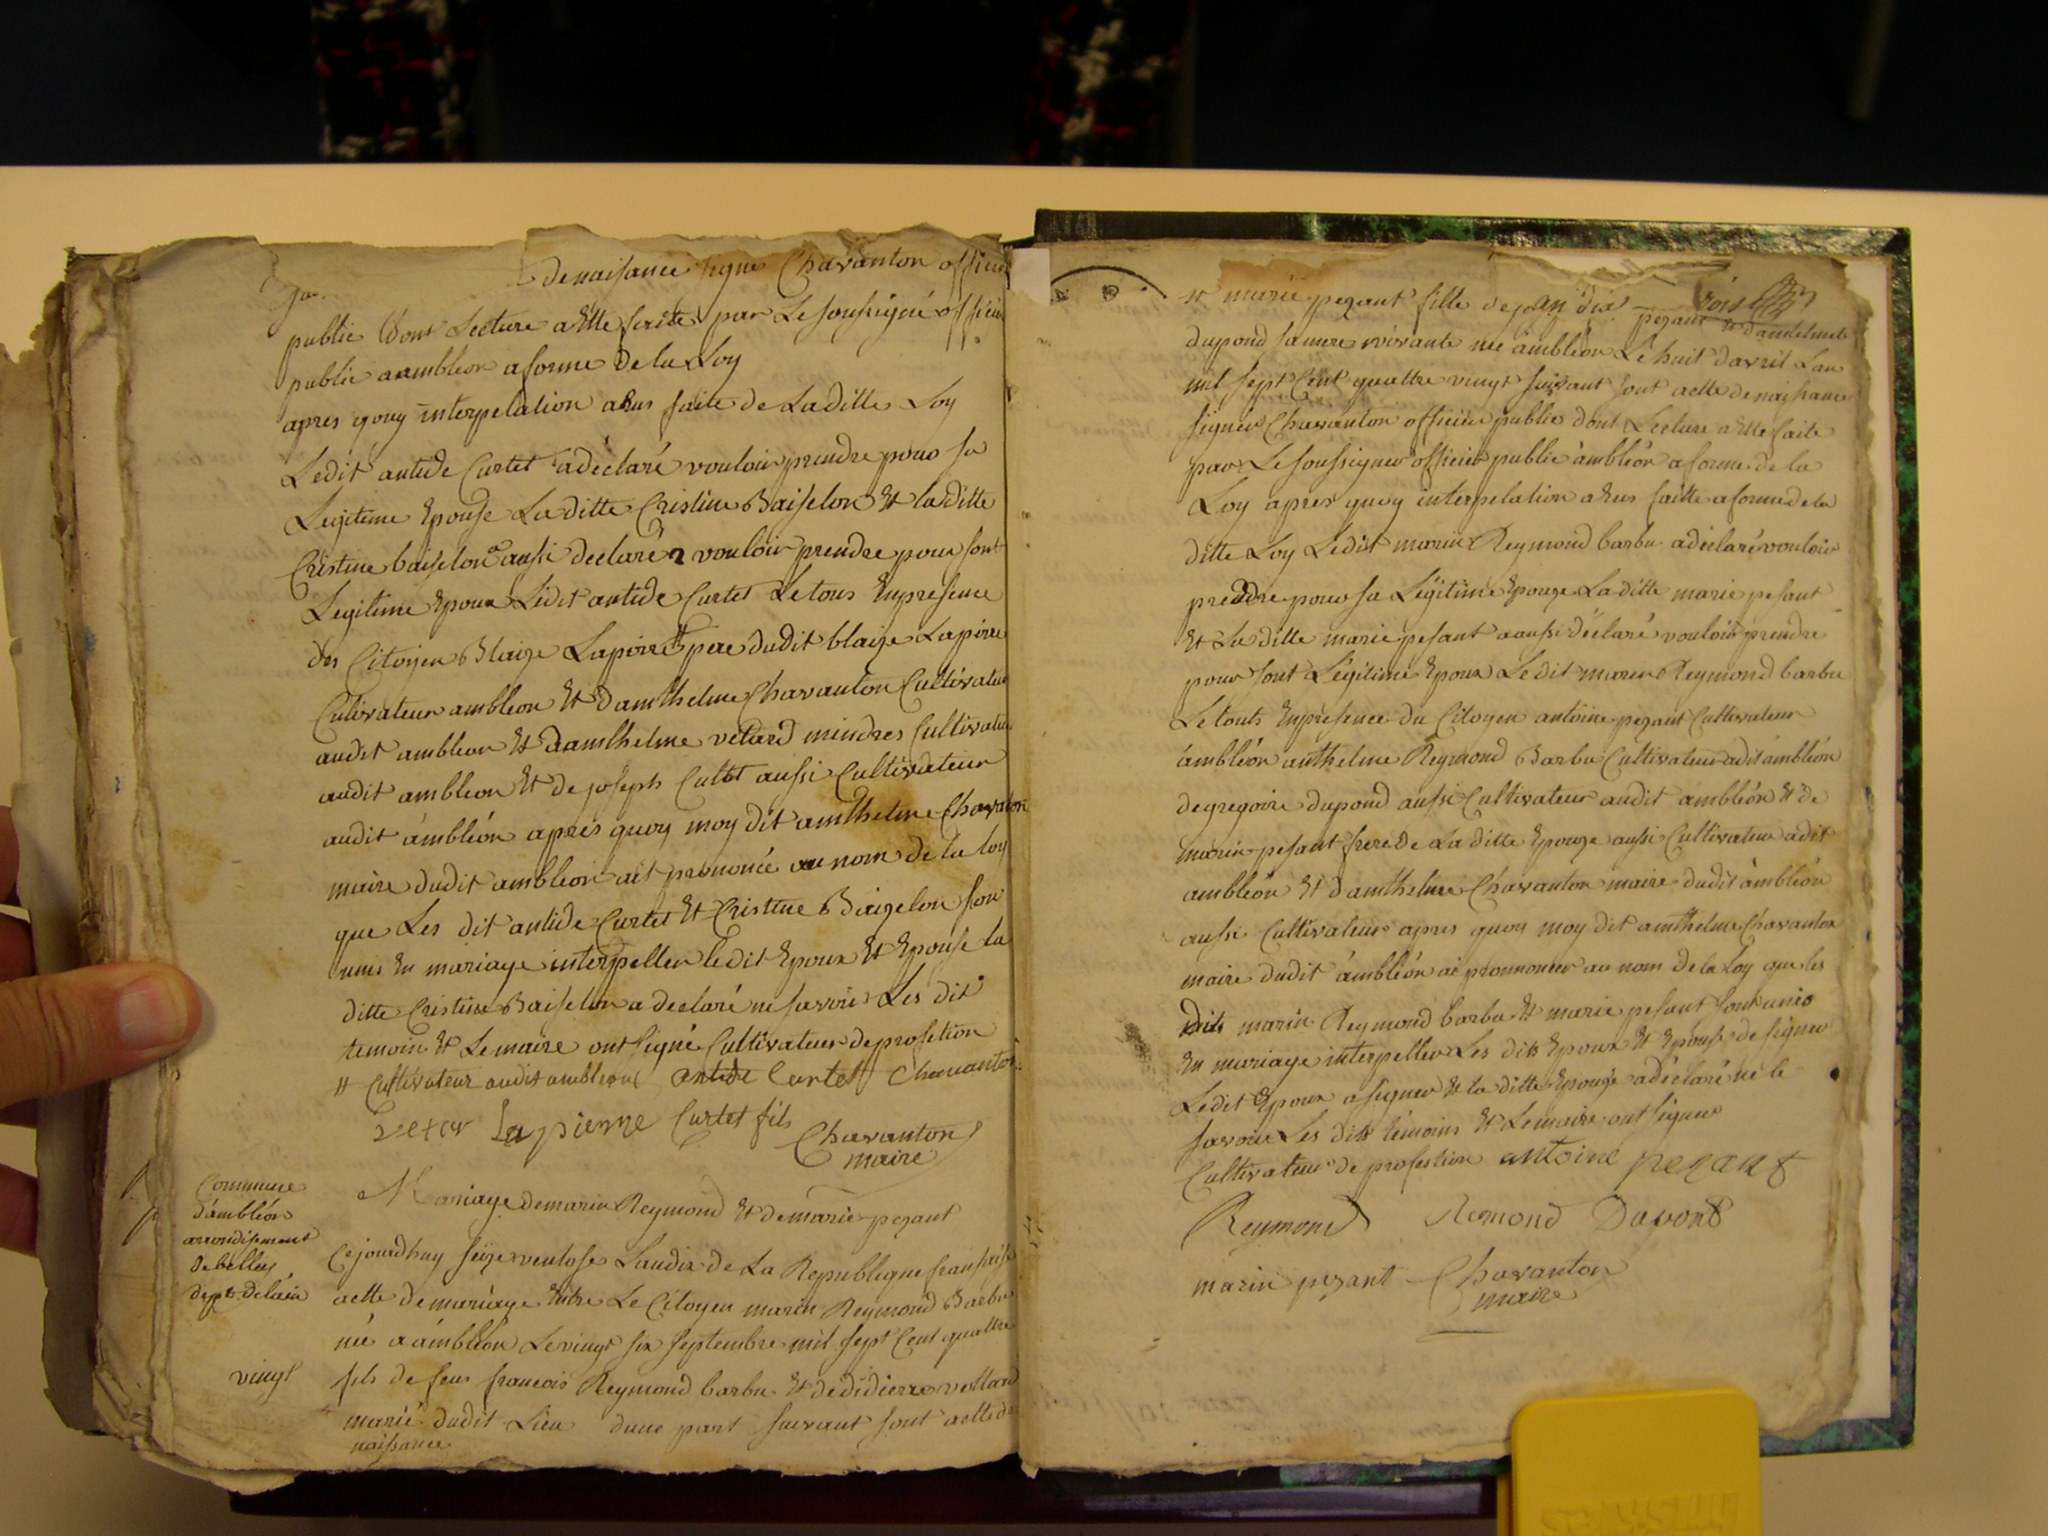 denaisance signe Chavanton officier
public dont Lecture a Ette faite par Le soussigné officier
public aambleon aforme De la Loy
apres quoy interpelation a Eus faite de Laditte Loy
Ledit antide Curtet adéclaré vouloir prendre pour sa
Legitime Epouse La ditte Cristine Baiselon Et laditte
Cristine baiselon a aussi declaré vouloir prendre pour sont
Legitime Epoux Ledit antide Curtet Le tous Enpresence
des Citoyen Blaize Lapierre pere dudit blaize Lapirre
Cultivateur ambleon Et Damthelme Chavanton Cultivateur
audit ambleon Et damthelme vetard mindres Cultivateur
audit ambleon Et de joseph Cultet aussi Cultivateur
audit ámbléon apres quoy moy dit amthelme Chavanton
maire dudit ambleon ait prononcé au nom de la loy
que Les dit antide Curtet Et Cristine Baizelon son
unis En mariage interpeller ledit Epoux Et Epouse la
ditte Cristine Baiselon a declaré ne savoir Les dit
temoin Et Le maire ont signé Cultivateur de profetion
Et Cultivateur audit ambleon antide Curtet Chavanton
Lapierre Curtet fils
Chavanton
maire
Commune
d'ámbléon
arrondisement
de belley
dept. de láin
Mariage demarin Reymond Et demarie pezant
Cejourdhuy seize ventose Landix de La Republique fransaise
acte de mariage Entre Le Citoyen marin Reymond Barbu
née a ámbléon Le vingt six septembre mil sept Cent quattre
vingt fils de feus francois Reymond barbu Et dedidierre vettard
marié dudit Lieu dune part suivant sont actte de
naissance
Et marie pezant fille de jean dix pezant Et dandelmete
dupond sa mere vivante née ámbléon Le huit davril Lan
mil sept Cent quattre vingt suivant sont actte denaissance
signér Chavanton officier public dont Lecture a Ette faite
par Le soussigner officier public ámbléon aforme de la
Loy apres quoy interpelation a Eus faitte aforme de la
ditte Loy Ledit marin Reymond barbu adéclaré vouloir
prendre pour sa Légitime Epouze La ditte marie pesant
Et La ditte marie pesant a aussi déclaré vouloir prendre
pour sont Légitime Epoux Ledit marin Reymond barbu
Le touts Enpresence du Citoyen antoine pezant Cultivateur
ámbléon anthelme Reymond Barbu Cultivateur audit ámbléon
de gregoire dupond aussi Cultivateur audit ámbléon Et de
marin pesant frere de La ditte Epouze aussi Cultivateur adit
ambléon Et damthelme Chavanton maire dudit ámbléon
aussi Cultivateur apres quoy moy dit amthelme Chavanton
maire dudit ámbléon ai pronnoncer au nom de la Loy que les
dits marin Reymond barbu Et marie pesant sont unis
En mariage interpeller Les dits Epoux Et Epouse de signer
Ledit Epoux a signer Et la ditte Epouze adéclaré ne le
savoir Les dits témoins Et Le maire ont signer
Cultivateur de profestion antoine pezant
Reymond Remond Dupont
marin pezant Chavanton
maire